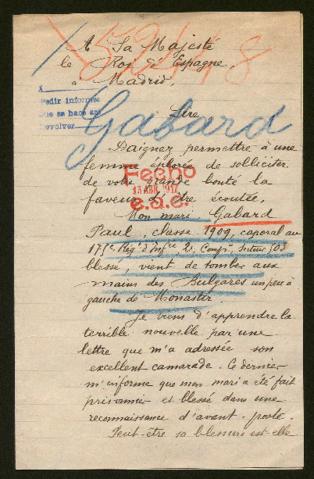 A Sa Majesté
le Roi d'Espagne,
Madrid,
Pedir informes
que se hace en
devolver
Sire
Gabard
Daignez permettre à une
femme éplorée de solliciter
de votre grande bonté la
faveur d'être écoutée.
Fecho
e.a.c.
Mon mari, Gabard
Paul, classe 1909, caporal au
175e Rég d'Infie 2. Compie, Secteur 503
blessé, vient de tomber aux
mains des Bulgares un peu à
gauche de Monastir.
Je viens d'apprendre la
terrible nouvelle par une
lettre que m'a adressée son
excellent camarade. Ce dernier
m'informe que mon mari a été fait
prisonnier et blessé dans une
reconnaissance d'avant-poste.
Peut-être sa blessure est-elle